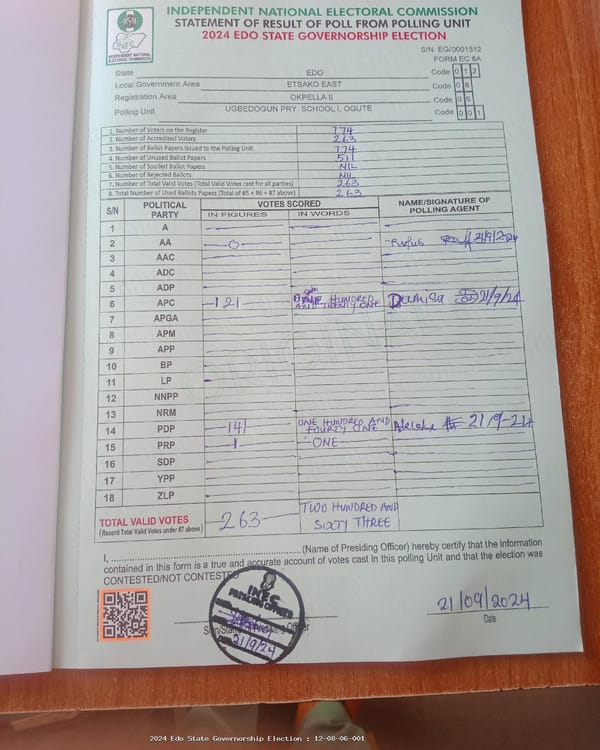 INDEPENDENT NATIONAL ELECTORAL COMMISSION
STATEMENT OF RESULT OF POLL FROM POLLING UNIT
2024 EDO STATE GOVERNORSHIP ELECTION
INEC
INDEPENDENT NATIONAL ELECTORAL COMMISSION
S/N: EG/0001512
FORM EC 8A
State EDO Code 0 1 2
Local Government Area ETSAKO EAST Code 0 8
Registration Area OKPELLA II Code 0 6
Polling Unit UGBEDOGUN PRY. SCHOOL I, OGUTE Code 0 0 1
1. Number of Voters on the Register 774
2. Number of Accredited Voters 263
3. Number of Ballot Papers issued to the Polling Unit 774
4. Number of Unused Ballot Papers 511
5. Number of Spoiled Ballot Papers NIL
6. Number of Rejected Ballots NIL
7. Number of Total Valid Votes (Total Valid Votes cast for all parties) 263
8. Total Number of Used Ballots Papers (Total of #5 + #6 + #7 above) 263
S/N POLITICAL PARTY VOTES SCORED NAME/SIGNATURE OF POLLING AGENT
IN FIGURES IN WORDS
1 A
2 AA -0- Rufus 21/9/2024
3 AAC
4 ADC
5 ADP
6 APC 121 ONE HUNDRED AND TWENTY ONE Damisa 21/9/24
7 APGA
8 APM
9 APP
10 BP
11 LP
12 NNPP
13 NRM
14 PDP 141 ONE HUNDRED AND FOURTY ONE 21/9-24
15 PRP 1 ONE
16 SDP
17 YPP
18 ZLP
TOTAL VALID VOTES 263 TWO HUNDRED AND SIXTY THREE
(Record Total Valid Votes under #7 above)
I, ................ (Name of Presiding Officer) hereby certify that the information
contained in this form is a true and accurate account of votes cast in this polling Unit and that the election was
CONTESTED/NOT CONTESTED
INEC
PRESIDING OFFICER
21/9/24
21/09/2024
Date
2024 Edo State Governorship Election : 12-08-06-001